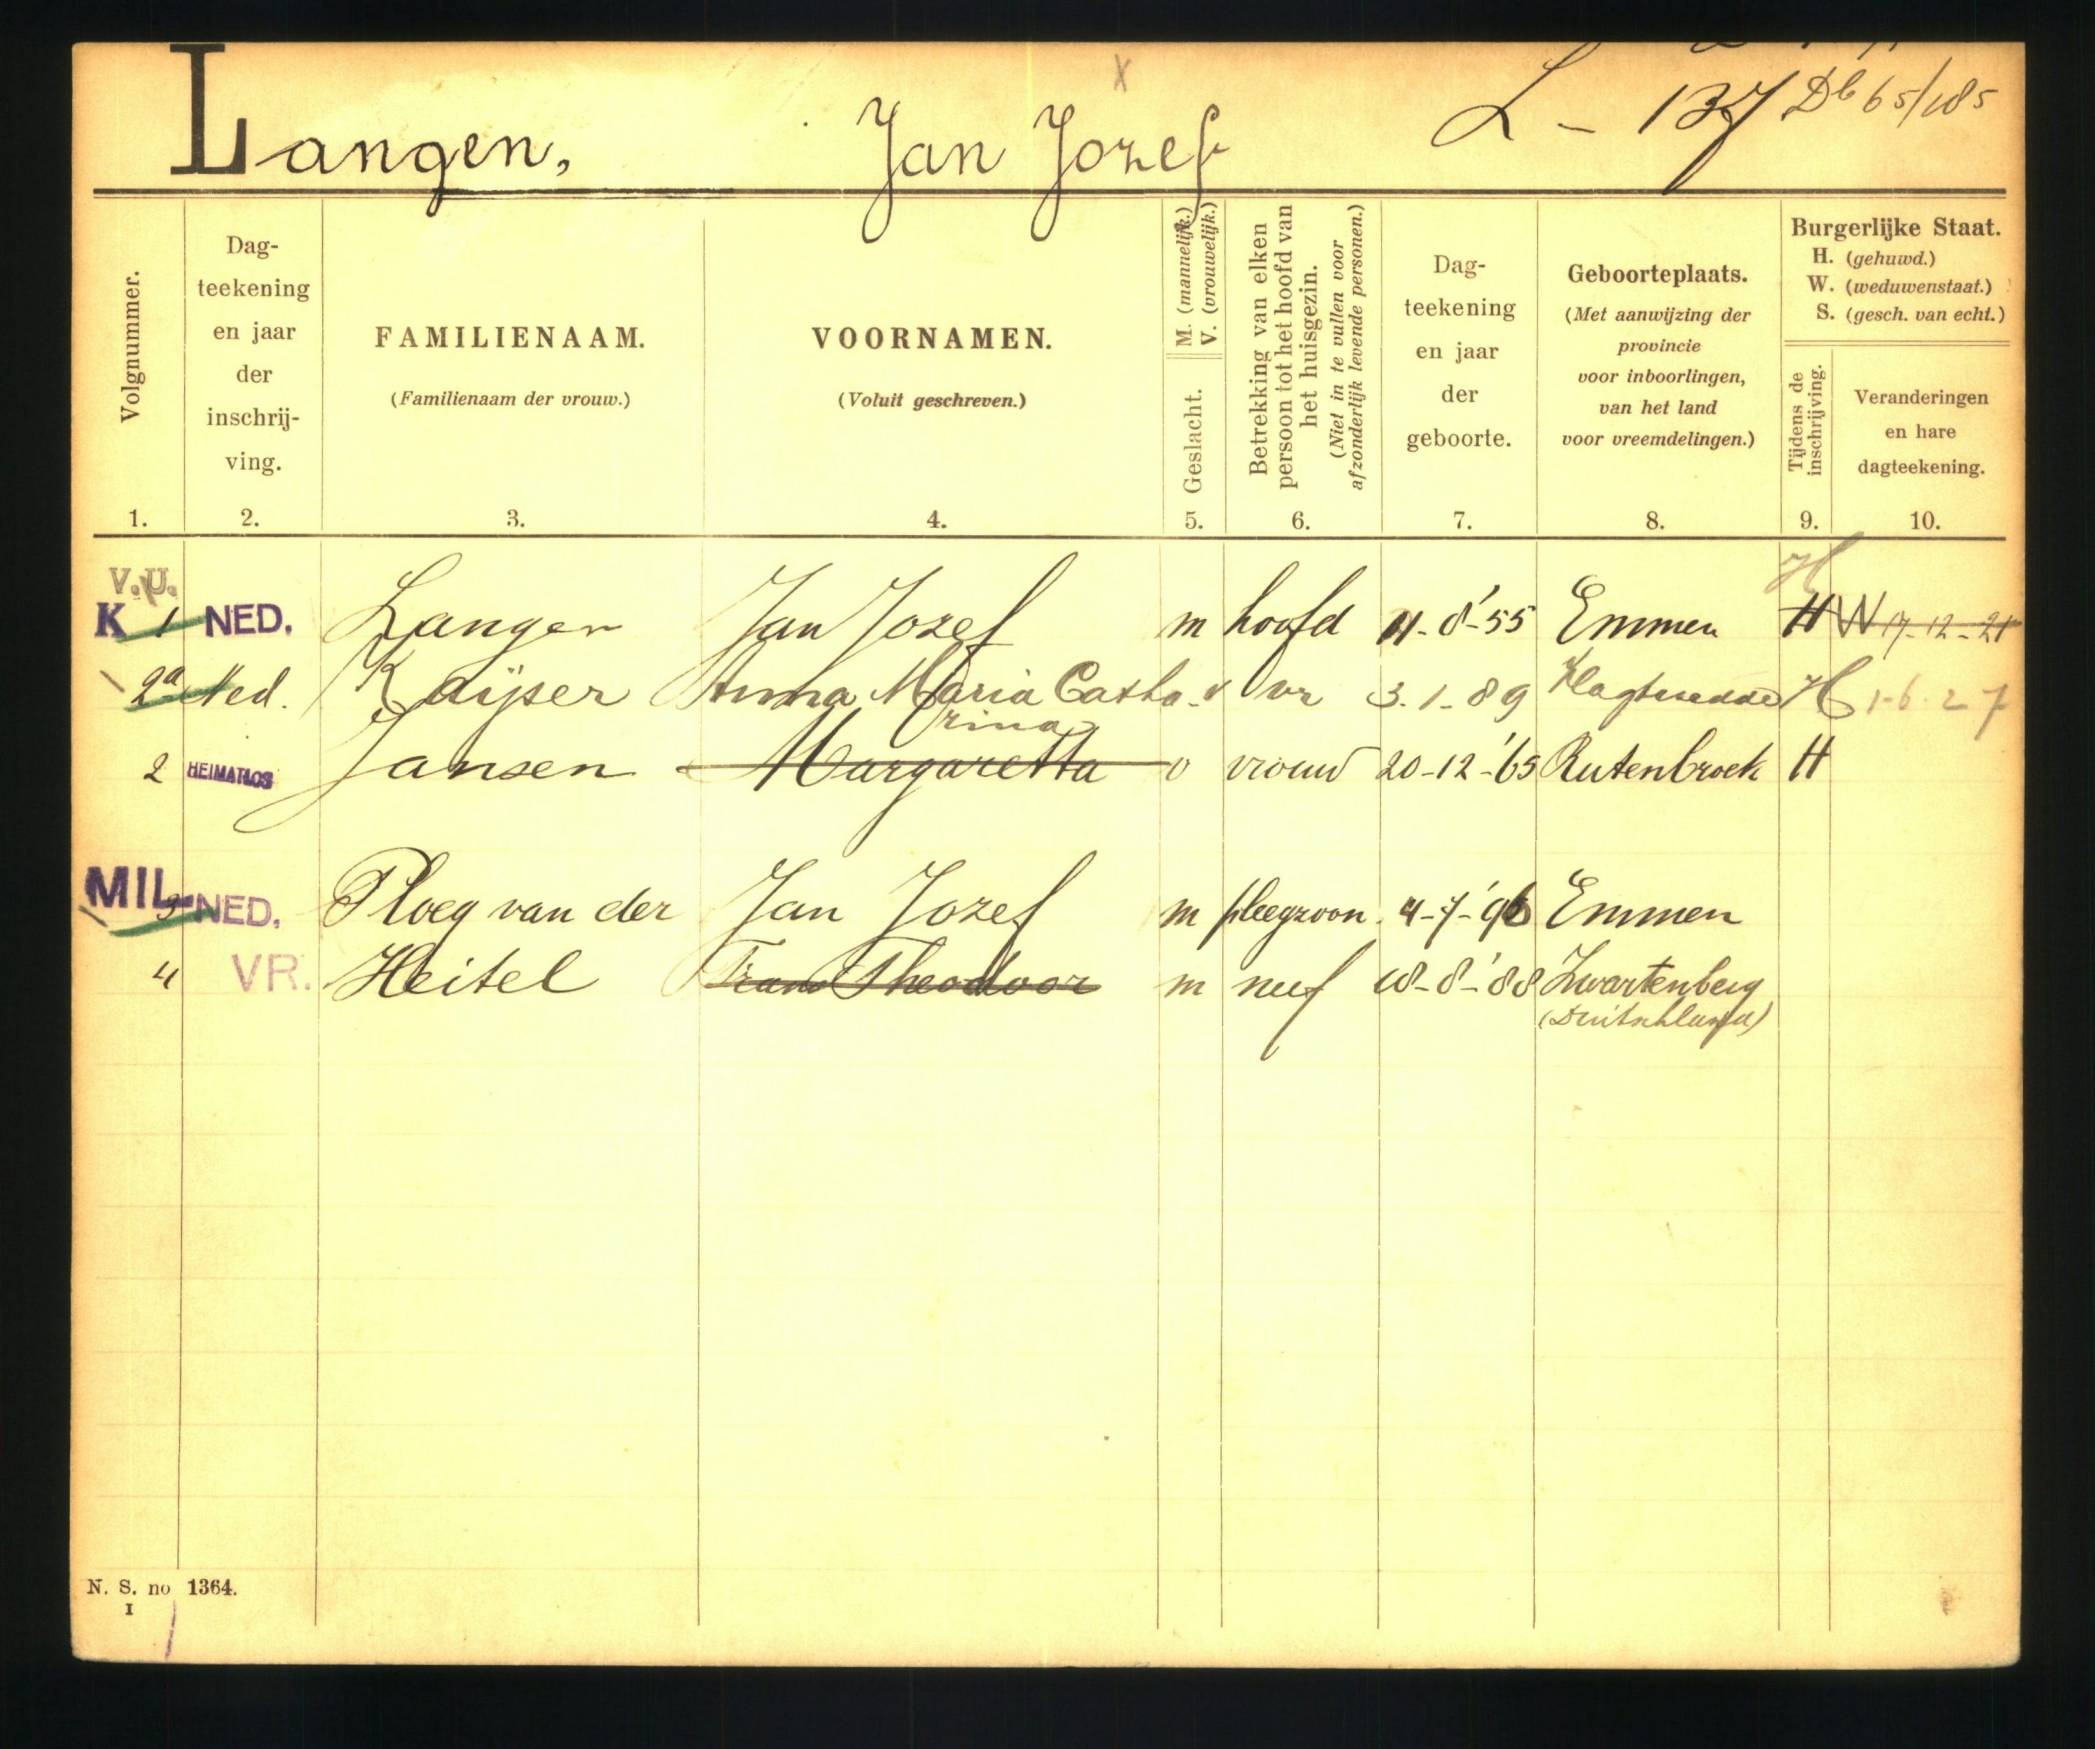 Langen, Jan Jozef L - 137 Db 65/185
Volgnummer.
1.
Dag-
teekening
en jaar
der
inschrij-
ving.
2.
FAMILIENAAM.
(Familienaam der vrouw.)
3.
VOORNAMEN.
(Voluit geschreven.)
4.
M. (mannelijk.)
V. (vrouwelijk.)
Geslacht.
5.
Betrekking van elken
persoon tot het hoofd van
het huisgezin.
(Niet in te vullen voor
afzonderlijk levende personen.)
6.
Dag-
teekening
en jaar
der
geboorte.
7.
Geboorteplaats.
(Met aanwijzing der
provincie
voor inboorlingen,
van het land
voor vreemdelingen.)
8.
Burgerlijke Staat.
H. (gehuwd.)
W. (weduwenstaat.)
S. (gesch. van echt.)
Tijdens de
inschrijving.
9.
Veranderingen
en hare
dagteekening.
10.
V.U. H
K 1 NED. Langen Jan Jozef m hoofd 11-8-'55 Emmen H W 17-12-21
2a Ned. Kaijser Anna Maria Catha- v vr 3.1-89 H 1-6-27
rina
2 HEIMATLOS Jansen Margaretta v vrouw 20-12-'65 Rutenbroek H
MIL. 3 NED. Ploeg van der Jan Jozef m pleegzoon. 4-7-'96 Emmen
4 VR. Heitel Frans Theodoor m neef 18-8-'88 Zwartenberg
(Duitschland)
N. S. no 1364.
I